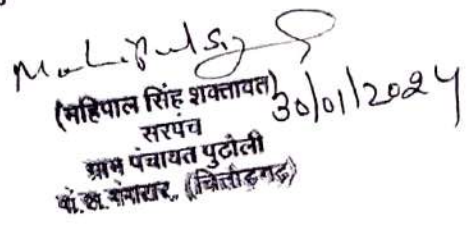 (महिपाल सिंह शक्तावत) 30/01/2024
सरपंच
ग्राम पंचायत पुठोली
पं.स. गंगरार, (चित्तौड़गढ़)